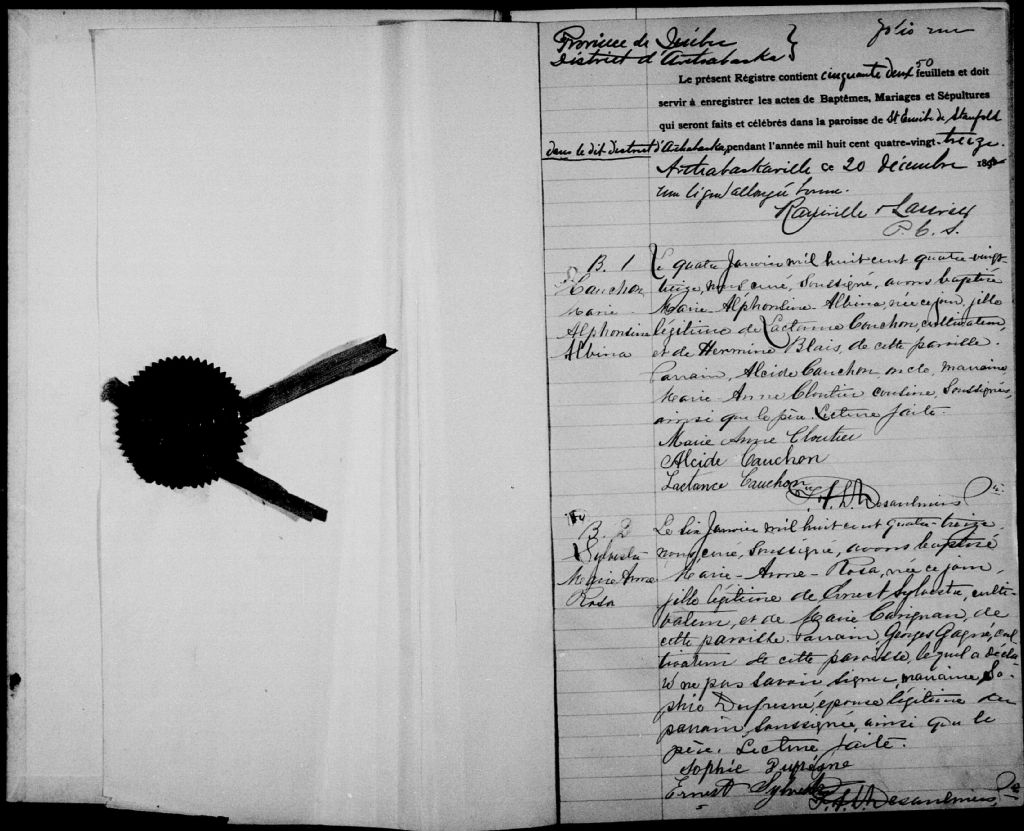 Province de Québec
District d'Arthabaska
folio un
Le présent Régistre contient cinquante deux 50 feuillets et doit
servir à enregistrer les actes de Baptêmes, Mariages et Sépultures
qui seront faits et célébrés dans la paroisse de St de Stanfold
dans le dit district d'Arthabaska, pendant l'année mil huit cent quatre-vingt-treize.
Arthabaskaville ce 20 décembre 189
une ligne allongée bonne.
& Laurier
P. C. S.
B. 1
Cauchon
Marie
Alphonsine
Albina
Le quatre Janvier mil huit cent quatre-vingt-
treize, nous curé, soussigné, avons baptisé
Marie Alphonsine Albina, née ce jour, fille
légitime de Lactance Cauchon, cultivateur,
et de Hermine Blais, de cette paroisse.
Parrain, Alcide Cauchon oncle, marraine
Marie Anne Cloutier cousine, soussignés,
ainsi que le père. Lecture faite.
Marie Anne Cloutier
Alcide Cauchon
Lactance Cauchon
Desaulniers Ptre
B. 2
Sylvestre
Marie Anne
Rosa
Le six Janvier mil huit cent quatre-treize
nous curé, soussigné, avons baptisé
Marie-Anne-Rosa, née ce jour,
fille légitime de Ernest Sylvestre, culti-
vateur, et de Marie Carignan, de
cette paroisse. Parrain, Georges Gagné, cul
tivateur de cette paroisse, lequel a décla
ré ne pas savoir signer, marraine, So-
phie Dufresne, épouse légitime du
parrain soussignée, ainsi que le
père. Lecture faite.
Sophie Dufresne
Ernest Sylvestre
Desaulniers Ptre